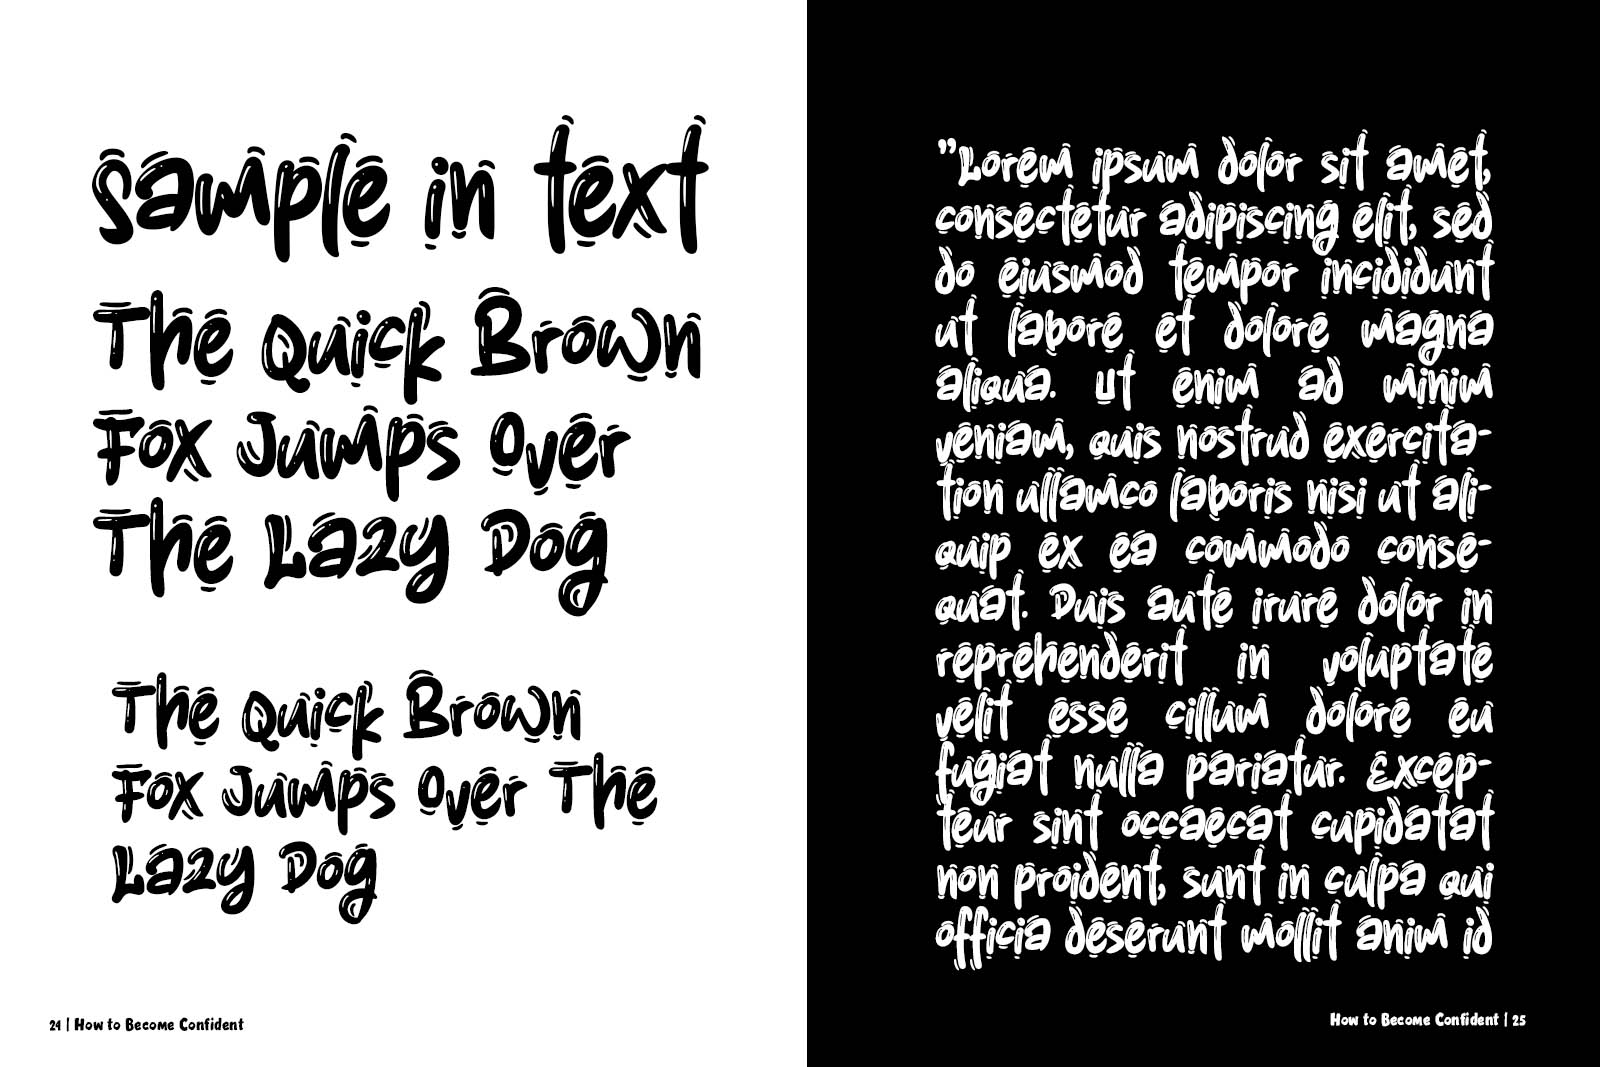 Sample in text
The Quick Brown
Fox Jumps Over
The Lazy Dog
The Quick Brown
Fox Jumps Over The
Lazy Dog
24 | How to Become Confident
"Lorem ipsum dolor sit amet,
consectetur adipiscing elit, sed
do eiusmod tempor incididunt
ut labore et dolore magna
aliqua. Ut enim ad minim
veniam, quis nostrud exercita-
tion ullamco laboris nisi ut ali-
quip ex ea commodo conse-
quat. Duis aute irure dolor in
reprehenderit in voluptate
velit esse cillum dolore eu
fugiat nulla pariatur. Excep-
teur sint occaecat cupidatat
non proident, sunt in culpa qui
officia deserunt mollit anim id
How to Become Confident | 25